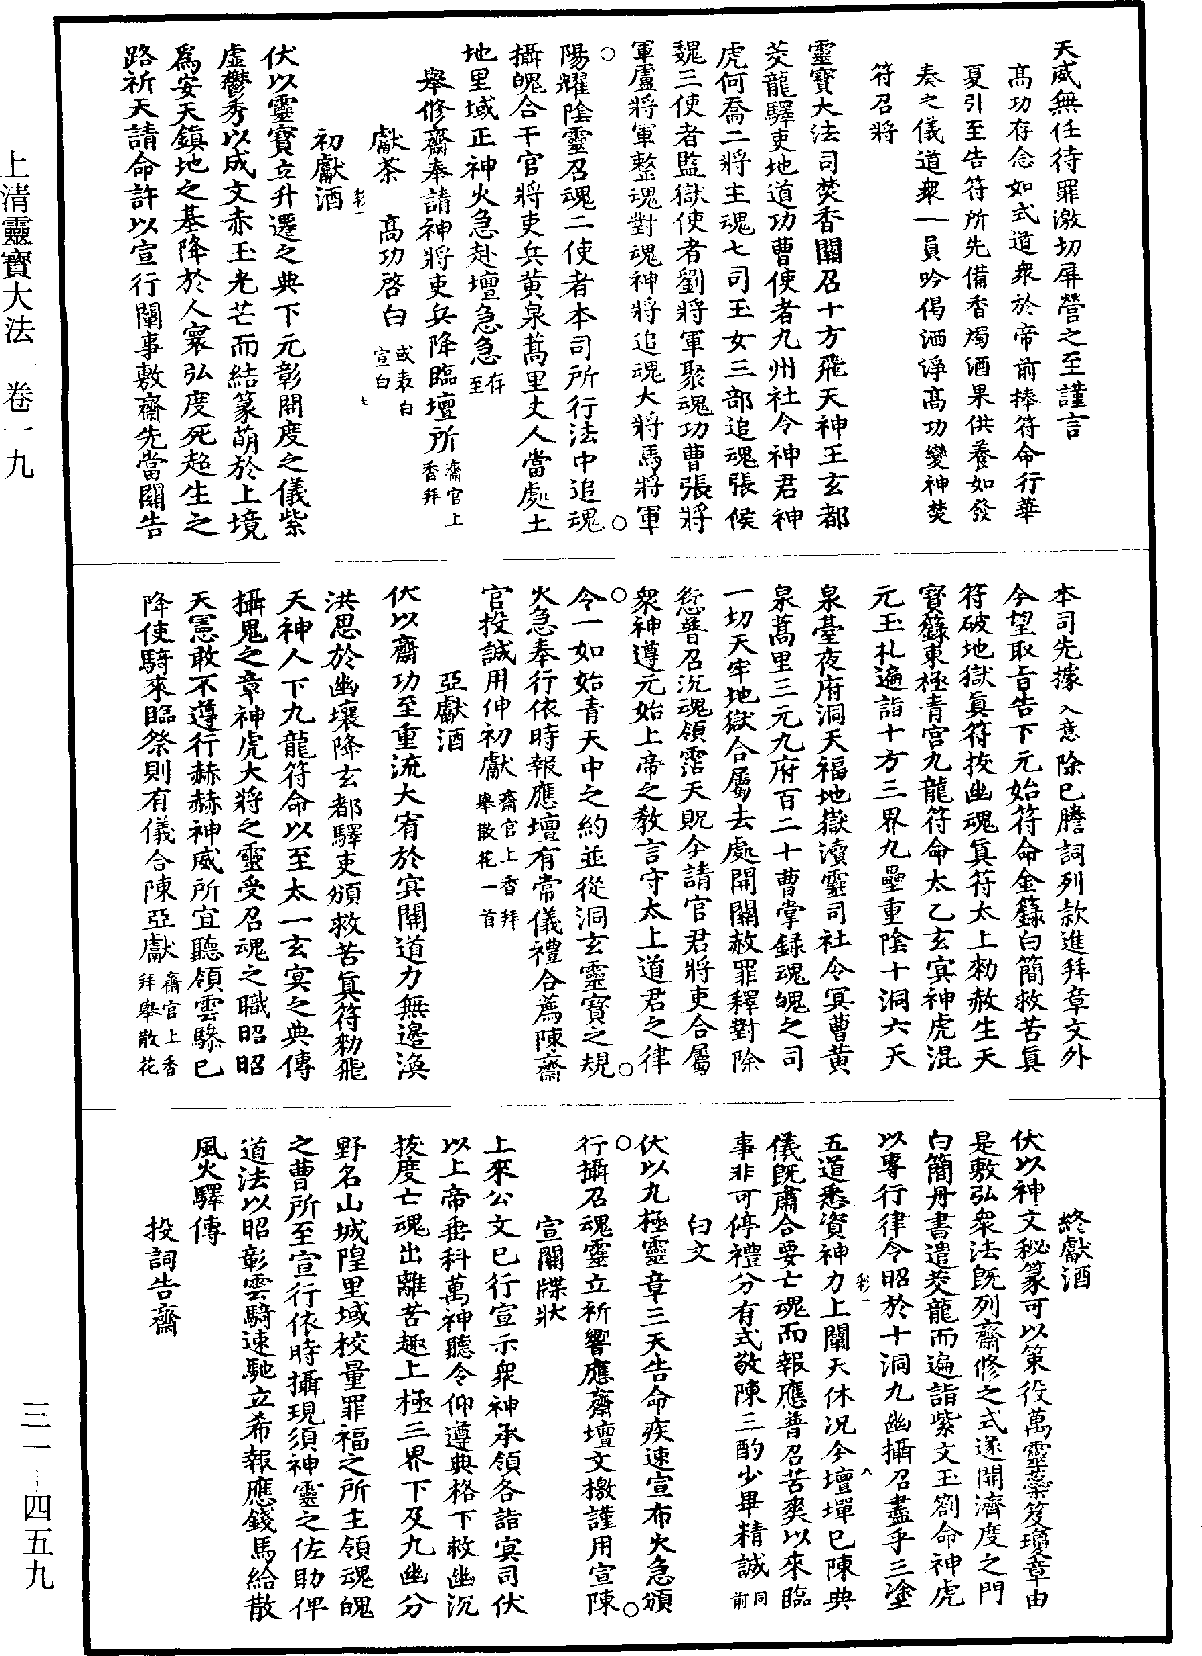 天威無任待罪激切屏營之至謹言
高功存念如式道衆於帝前捧符命行華
夏引至告符所先備香燭酒果供養如發
奏之儀道衆一員吟偈洒淨高功變神焚
符召將
靈寶大法司焚香關召十方飛天神王玄都
茭龍驛吏地道功曹使者九州社令神君神
虎何喬二將主魂七司玉女三部追魂張侯
魏三使者監獄使者劉將軍聚魂功曹張將
軍盧將軍整魂對魂神將追魂大將馬將軍
陽耀陰靈召魂二使者本司所行法中追魂
攝魄合干官將吏兵黃泉蒿里丈人當處土
地里域正神火急赴壇急急存至
舉修齋奉請神將吏兵降臨壇所齋官上香拜
獻茶 高功啓白或表白宣白
初獻酒
伏以靈寶立升遷之典下元彰開度之儀紫
虛鬱秀以成文赤玉光芒而結篆萌於上境
爲安天鎮地之基降於人寰弘度死超生之
路祈天請命許以宣行關事敷齋先當關告
本司先據入意除已謄詞列款進拜章文外
今望取旨告下元始符命金籙白簡救苦眞
符破地獄眞符拔幽魂眞符太上勑赦生天
寶籙東極青宮九龍符命太乙玄冥神虎混
元玉札遍詣十方三界九壘重陰十洞六天
泉臺夜府洞天福地嶽瀆靈司社令冥曹黃
泉蒿里三元九府百二十曹掌錄魂魄之司
一切天牢地獄合屬去處開關赦罪釋對除
愆普召沉魂領霑天貺今請官君將吏合屬
衆神遵元始上帝之敎言守太上道君之律
令一如始青天中之約並從洞玄靈寶之規
火急奉行依時報應壇有常儀禮合薦陳齋
官投誠用伸初獻齋官上香拜舉散花一首
亞獻酒
伏以齋功至重流大宥於冥關道力無邊渙
洪恩於幽壤降玄都驛吏頒救苦眞符勑飛
天神人下九龍符命以至太一玄冥之典傳
攝鬼之章神虎大將之靈受召魂之職昭昭
天憲敢不遵行赫赫神威所宜聽領雲騑已
降使騎來臨祭則有儀合陳亞獻齋官上香拜舉散花
終獻酒
伏以神文秘篆可以策役萬靈蘂笈瓊章由
是敷弘衆法旣列齋修之式遂開濟度之門
白簡丹書遣茭龍而遍詣紫文玉劄命神虎
以專行律令昭於十洞九幽攝召盡乎三塗
五道悉資神力上闡天休況今壇墠已陳典
儀旣肅合要亡魂而報應普召苦爽以來臨
事非可停禮分有式敬陳三酌少畢精誠同前
白文
伏以九極靈章三天告命疾速宣布火急頒
行攝召魂靈立祈響應齋壇文檄謹用宣陳
宣關牒狀
上來公文已行宣示衆神承領各詣冥司伏
以上帝垂科萬神聽令仰遵典格下救幽沉
拔度亡魂出離苦趣上極三界下及九幽分
野名山城隍里域校量罪福之所主領魂魄
之曹所至宣行依時攝現須神靈之佐助俾
道法以昭彰雲騎速馳立希報應錢馬給散
風火驛傳
投詞告齋
上清靈寶大法 卷一九
三一–四五九